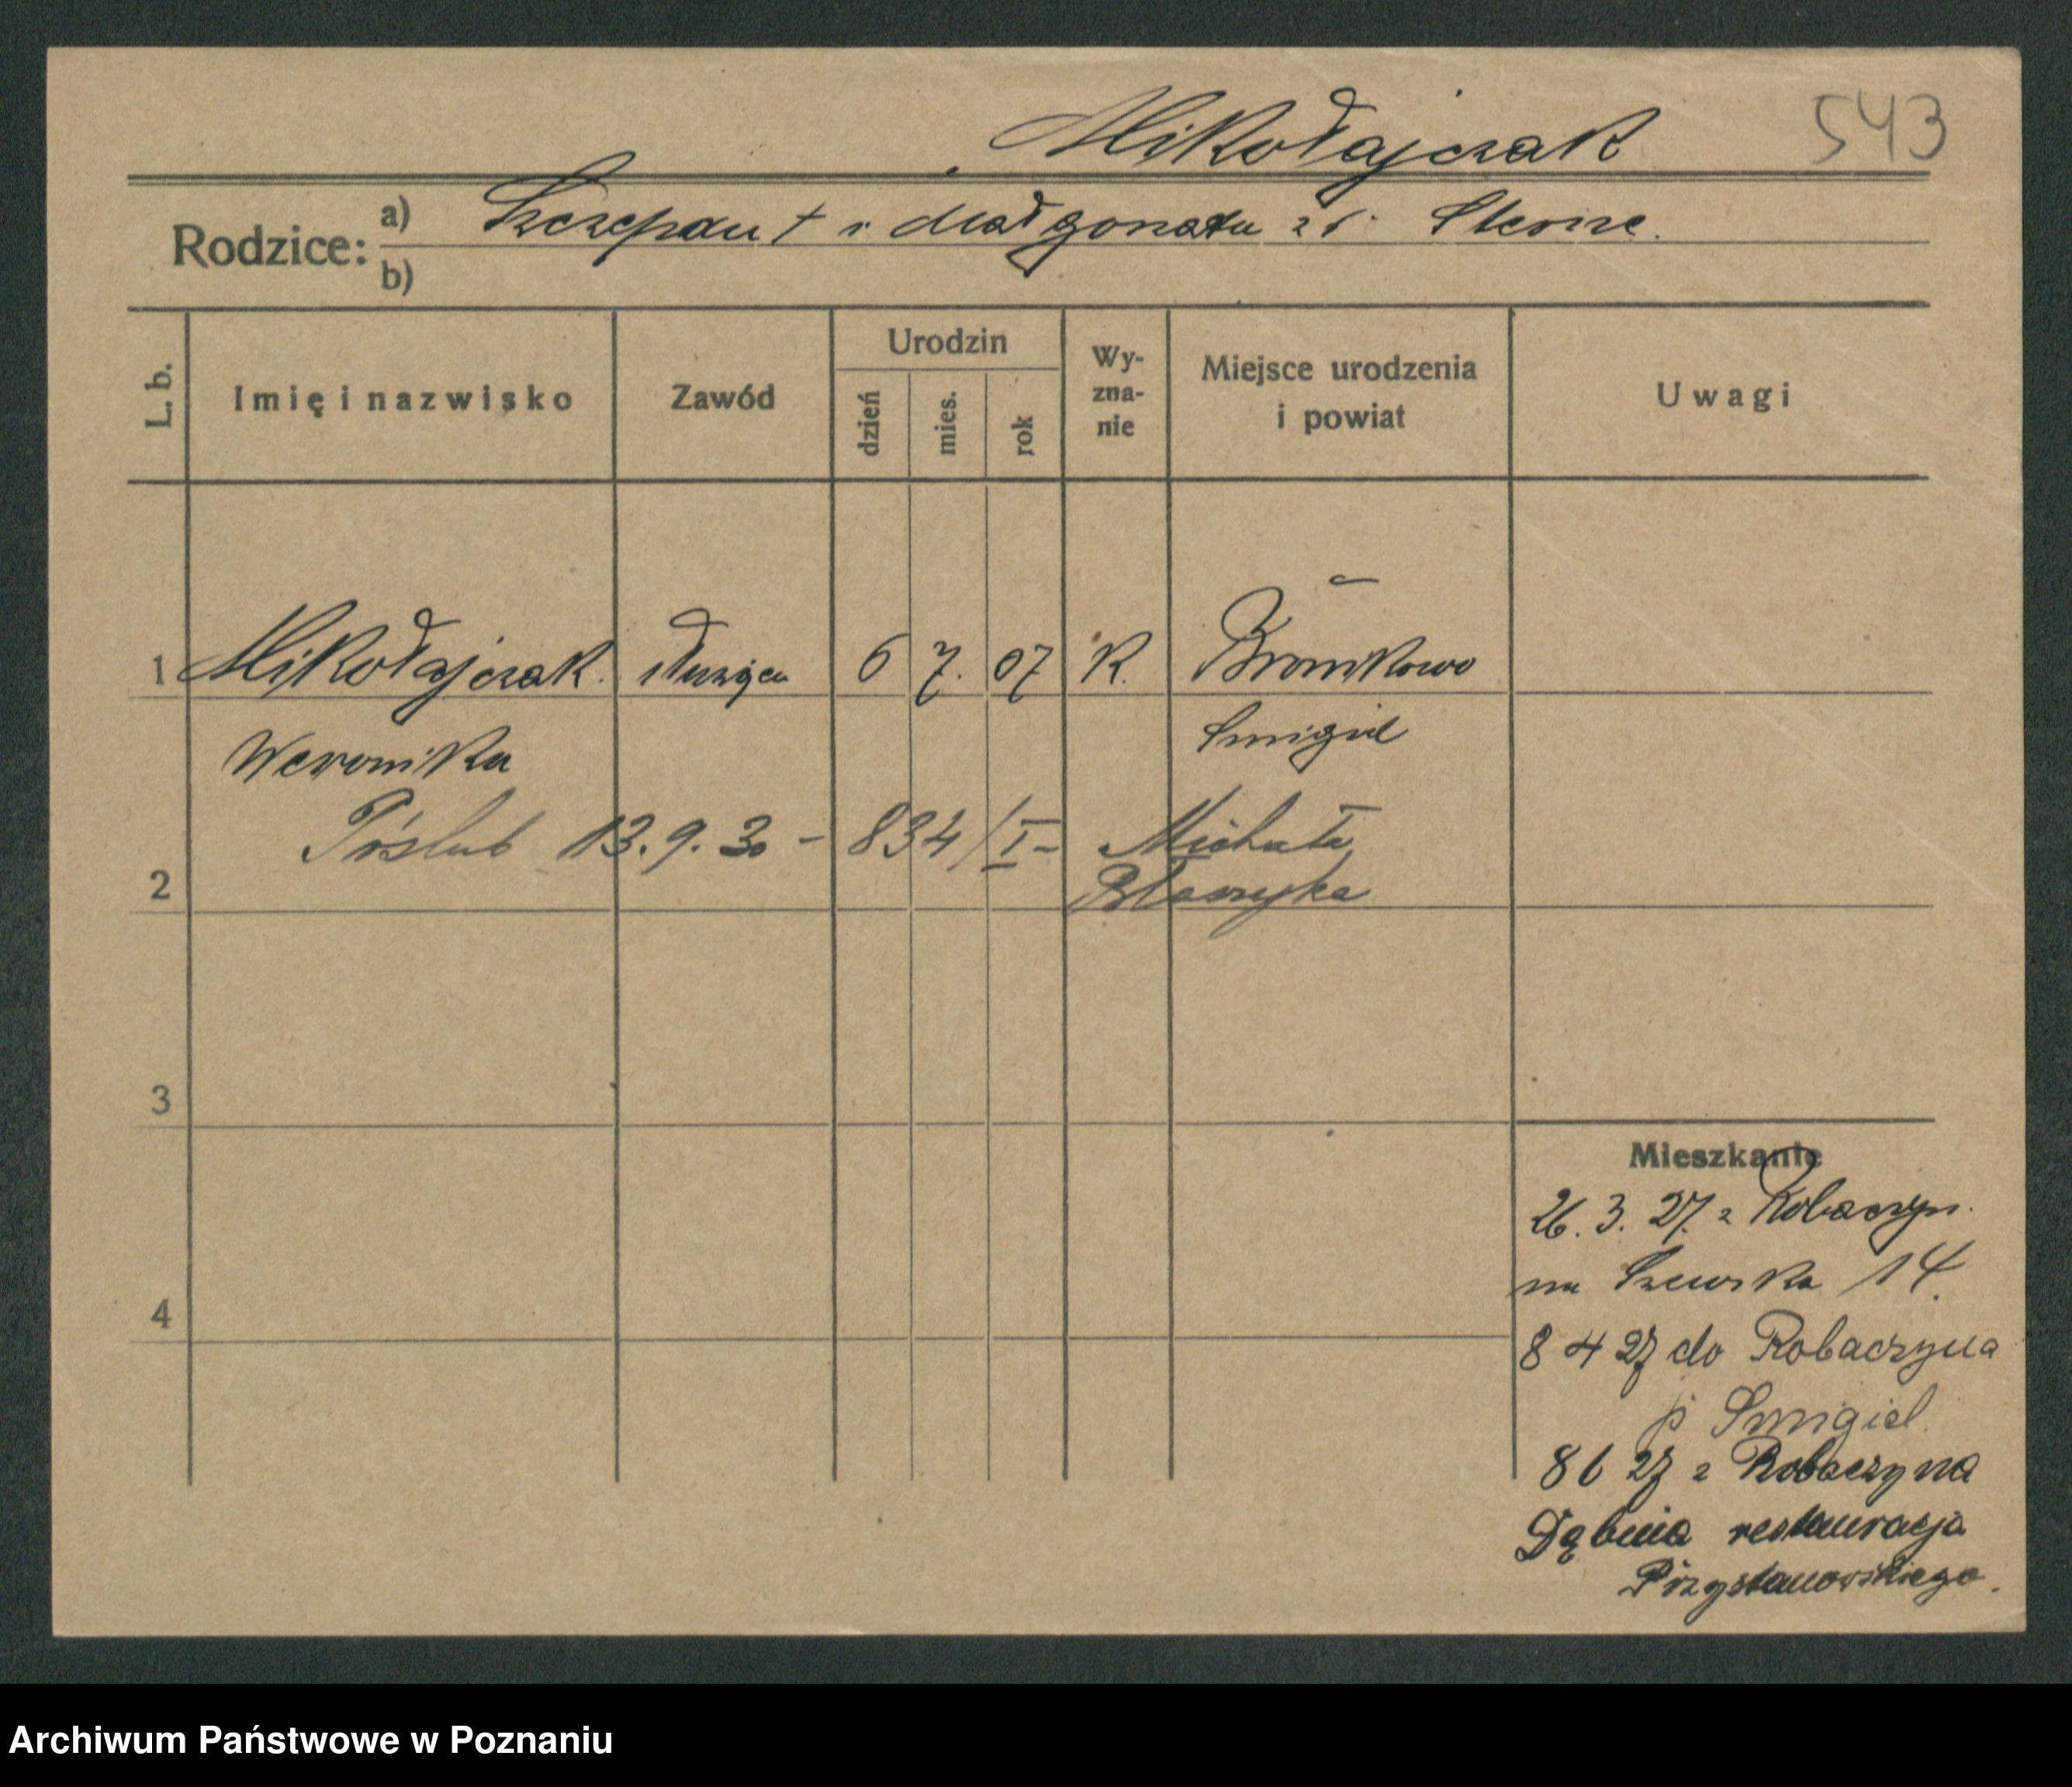 Mikołajczak 543
Rodzice: a) Szczepan † i Małgorzata z d.
b)
L. b. Imię i nazwisko Zawód Urodzin dzień mies. rok Wy-zna-nie Miejsce urodzenia i powiat Uwagi
1 Mikołajczak służąca 6 7. 07 K. Bronikowo
Weronika Smigiel
Poślub 13.9.30 - 834/I - Michała
2 Błaszyka
3
Mieszkanie
26. 3. 27. z Robaczyn.
na Szewska 14.
4
8 4 27 do Robaczyna
p Smigiel
8 6 27 z Robaczyna
Dębina restauracja
Przystanowskiego.
Archiwum Państwowe w Poznaniu